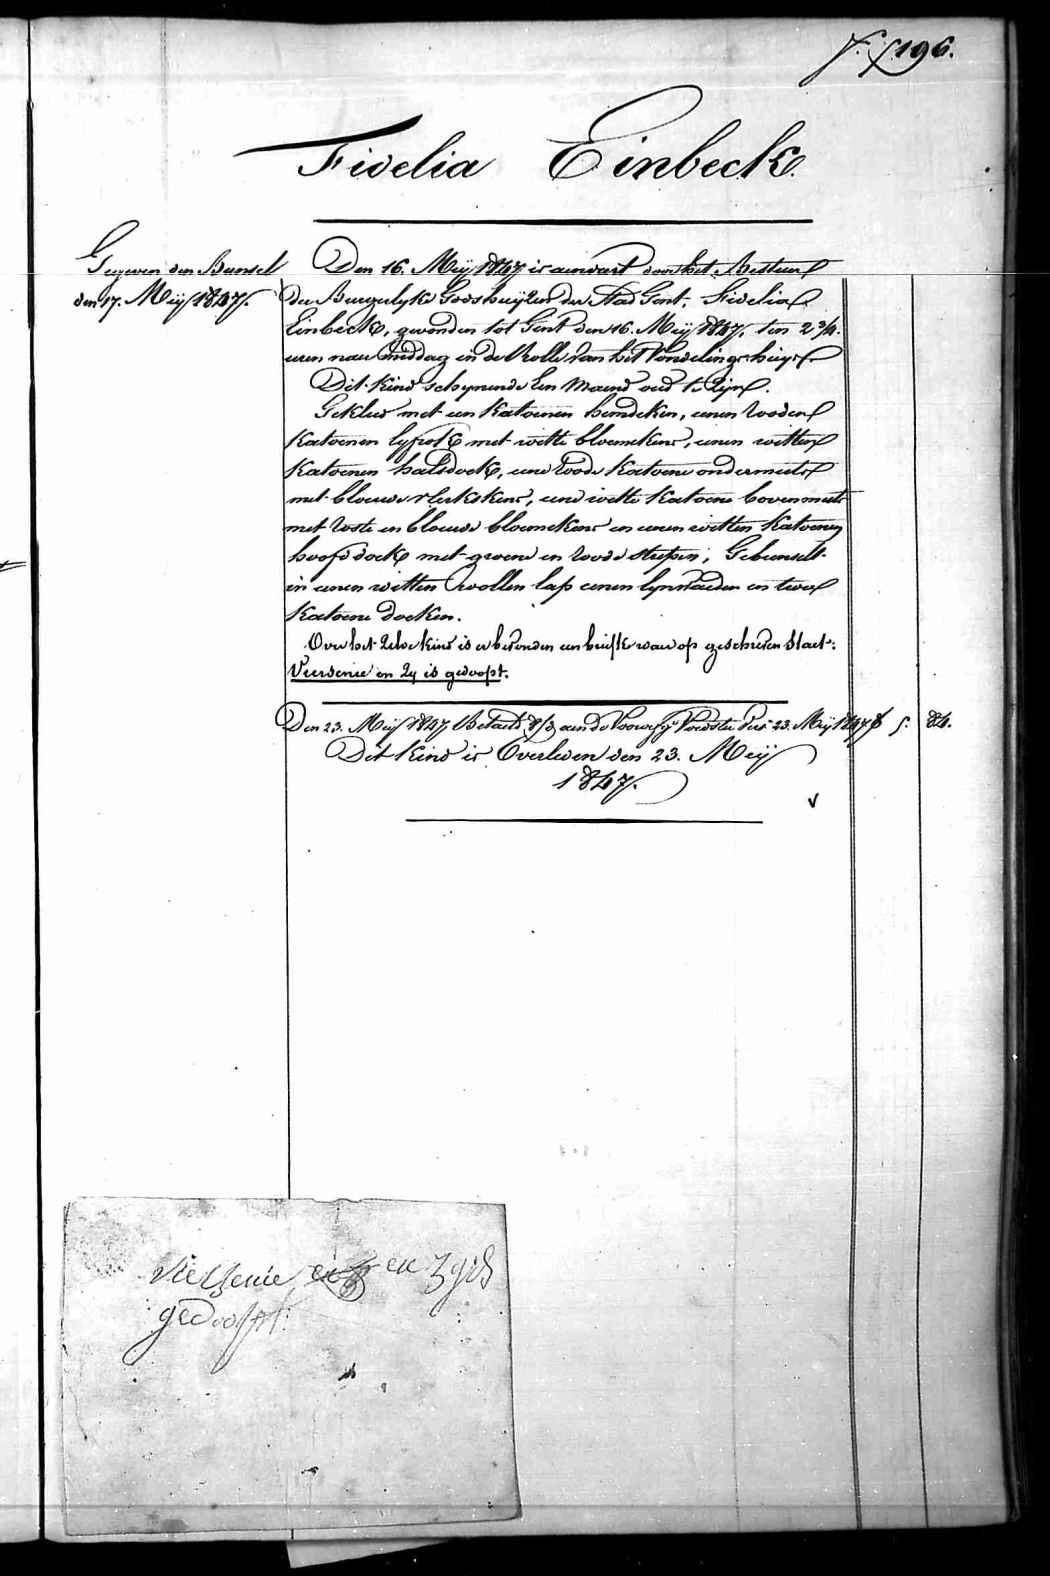 F.º 196.
Fidelia Einbeck.
Gegeven den Bunsel
den 17. Meij 1847.
Den 16. Meij 1847 is aenvart door het Bestuer
der Burgerlyke Godshuijzen der Stad Gent, Fidelia
Einbeck, gevonden tot Gent den 16. Meij 1847, ten 2 3/4
uren naer middag in de Rolle van het Vondelingshuijs.
Dit kind schynende Een Maend oud te zijn.
Gekleed met een katoenen hemdeken, eenen rooden
katoenen lyfrok met witte bloemekens, eenen witten
katoenen halsdoek, eene roode katoene ondermuts
met blauwe vlekskens, eene witte katoene bovenmuts
met roste en blauwe bloemekens en eenen witten katoenen
hoofddoek met groene en roode strepen; Gebunselt
in eenen witten wollen lap eenen lynwaeden en twee
katoene doeken.
Over het zelve kind is er bevonden een briefke waer op geschreven staet:
Viersenie en zy is gedoopt.
Den 23. Meij 1847 Betaeld 8/d aen de Voorzegde Voedster tot 23. Meij 1847 f 5. 84.
Dit kind is Overleden den 23. Meij
1847.
Viersenie en zy is
gedoopt.